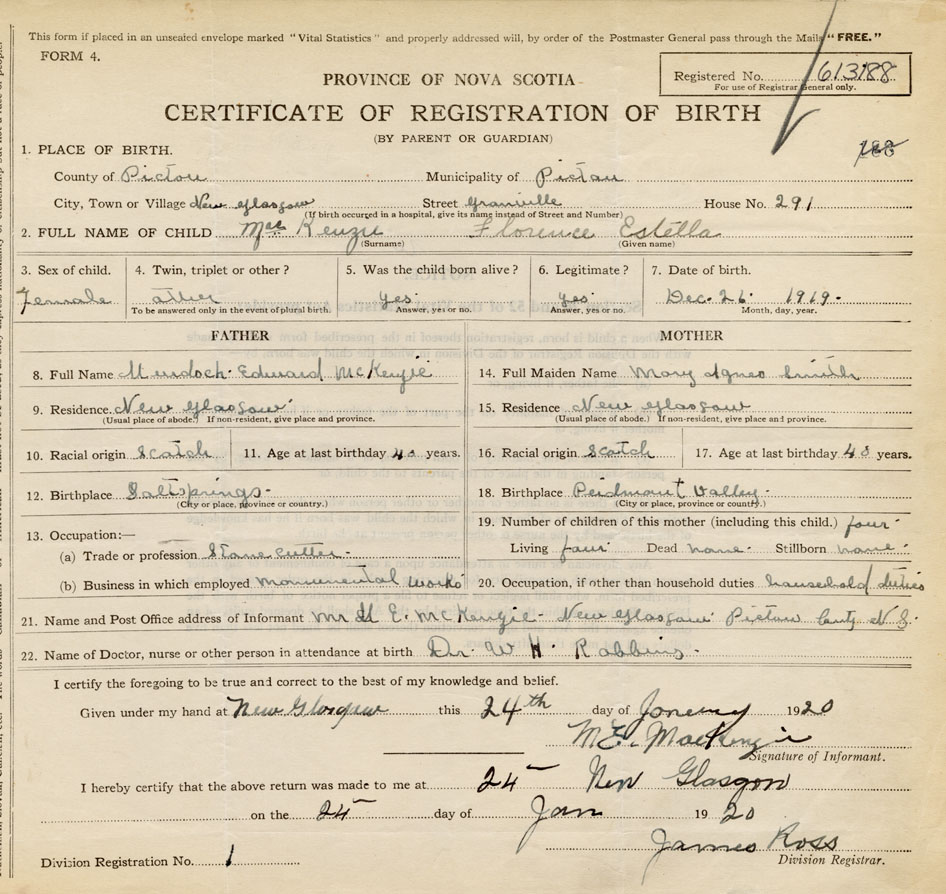 This form if placed in an unsealed envelope marked "Vital Statistics" and properly addressed will, by order of the Postmaster General pass through the Mails "FREE."
FORM 4.
PROVINCE OF NOVA SCOTIA
Registered No. 613188
For use of Registrar General only.
CERTIFICATE OF REGISTRATION OF BIRTH
(BY PARENT OR GUARDIAN)
188
1. PLACE OF BIRTH.
County of Pictou Municipality of Pictou
City, Town or Village New Glasgow Street Granville House No. 291
(If birth occurred in a hospital, give its name instead of Street and Number)
2. FULL NAME OF CHILD Mac Kenzie Florence Estella
(Surname) (Given name)
3. Sex of child. 4. Twin, triplet or other? 5. Was the child born alive? 6. Legitimate? 7. Date of birth.
Female other Yes Yes Dec. 26 1919.
To be answered only in the event of plural birth. Answer, yes or no. Answer, yes or no. Month, day, year.
FATHER MOTHER
8. Full Name Murdoch Edward McKenzie 14. Full Maiden Name Mary Agnes Smith
9. Residence. New Glasgow 15. Residence New Glasgow
(Usual place of abode.) If non-resident, give place and province. (Usual place of abode.) If non-resident, give place and province.
10. Racial origin Scotch 11. Age at last birthday years. 16. Racial origin Scotch 17. Age at last birthday 40 years.
12. Birthplace Saltsprings 18. Birthplace Peidmount Valley
(City or place, province or country.) (City or place, province or country.)
13. Occupation:— 19. Number of children of this mother (including this child.) four
(a) Trade or profession Stone cutter Living four Dead none Stillborn none
(b) Business in which employed Monumental Works 20. Occupation, if other than household duties household duties
21. Name and Post Office address of Informant Mr M E. McKenzie New Glasgow Pictou N S.
22. Name of Doctor, nurse or other person in attendance at birth Dr. W H. Robbins
I certify the foregoing to be true and correct to the best of my knowledge and belief.
Given under my hand at New Glasgow this 24th day of January 1920
M.E. MacKenzie
Signature of Informant.
I hereby certify that the above return was made to me at 24 New Glasgow
on the 24 day of Jan 1920
James Ross
Division Registration No. 1 Division Registrar.